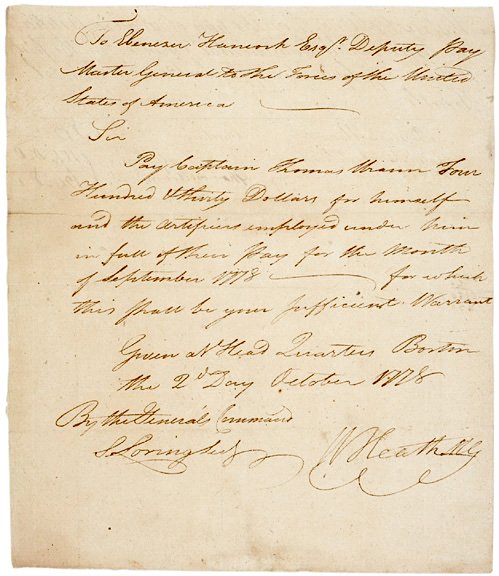 To Ebenezer Hancock Esqr. Deputy Pay
Master General to the Forces of the United
States of America
Sir
Pay Captain Thomas Four
Hundred & thirty Dollars for himself
and the artificers employed under him
in full of their Pay for the Month
of September 1778 for which
this shall be your sufficient Warrant
Given at Head Quarters Boston
the 2d Day October 1778
By the General Command
S. Loring
W Heath M G